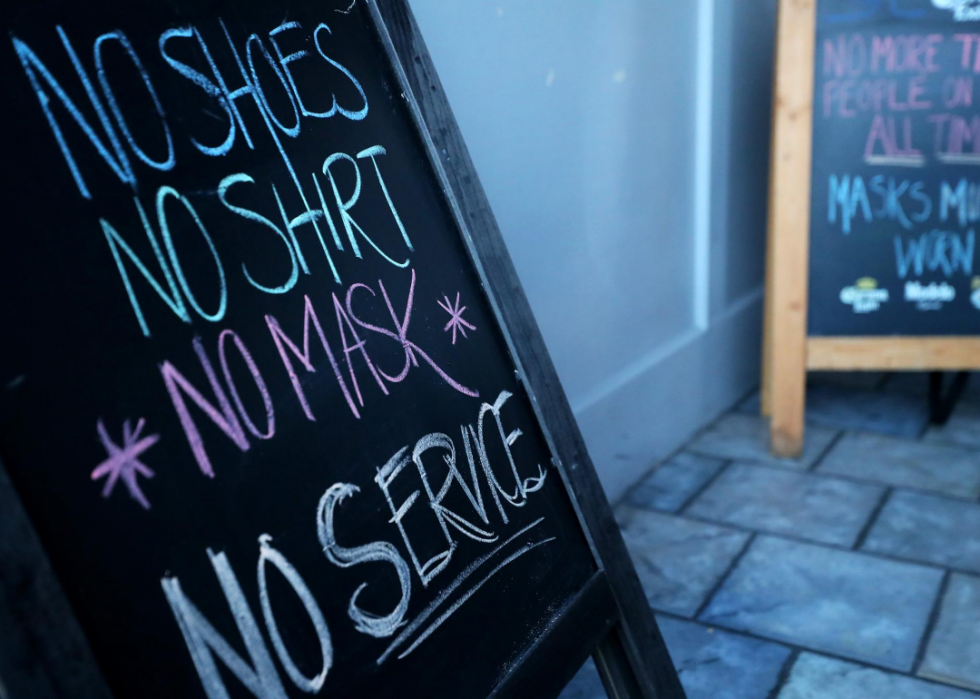 NO SHOES
NO SHIRT
* NO MASK *
NO SERVICE
NO MORE
PEOPLE ON
ALL
MASKS
WORN
Corona
Modelo